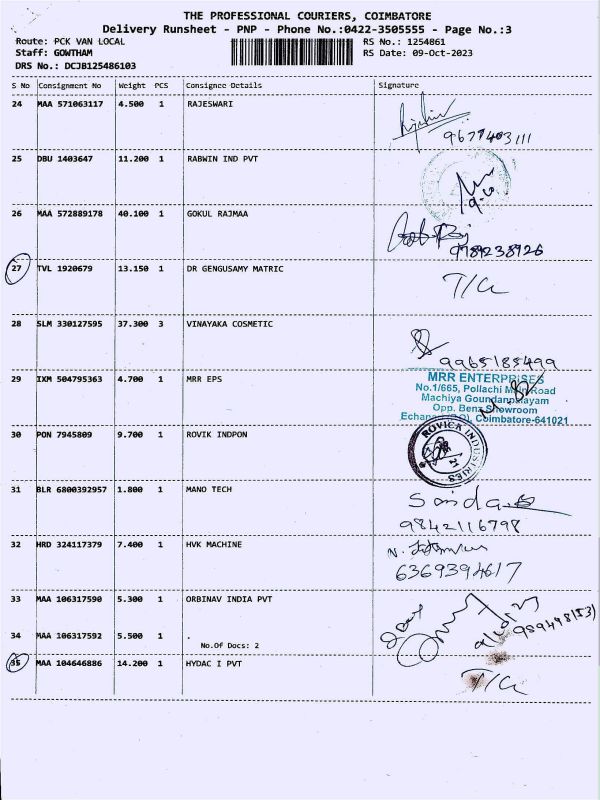 THE PROFESSIONAL COURIERS, COIMBATORE
Delivery Runsheet - PNP - Phone No.:0422-3505555 - Page No.:3
Route: PCK VAN LOCAL
RS No.: 1254861
Staff: GOWTHAM
RS Date: 09-Oct-2023
DRS No.: DCJB125486103
S No Consignment No Weight PCS Consignee Details Signature
24 MAA 571063117 4.500 1 RAJESWARI
9677403111
25 DBU 1403647 11.200 1 RABWIN IND PVT
26 MAA 572889178 40.100 1 GOKUL RAJMAA
9789238926
27 TVL 1920679 13.150 1 DR GENGUSAMY MATRIC
28 SLM 330127595 37.300 3 VINAYAKA COSMETIC
9965185499
29 IXM 504795363 4.700 1 MRR EPS
MRR ENTERPRISES
No.1/665, Pollachi Main Road
Machiya Goundanpalayam
Opp. Benz Showroom
Coimbatore-641021
30 PON 7945809 9.700 1 ROVIK INDPON
ROVICK INDUSTRIES
31 BLR 6800392957 1.800 1 MANO TECH
9842116798
32 HRD 324117379 7.400 1 HVK MACHINE
6369394617
33 MAA 106317590 5.300 1 ORBINAV INDIA PVT
34 MAA 106317592 5.500 1 .
No.Of Docs: 2
35 MAA 104646886 14.200 1 HYDAC I PVT